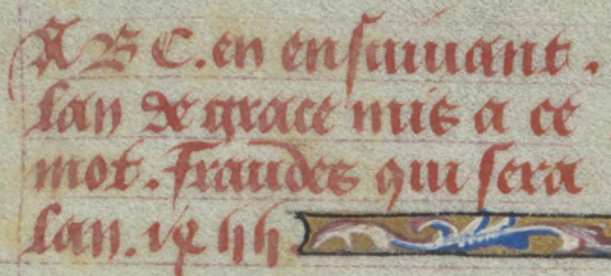 A B C. en ensuiuant.
lan de grace mis a ce
mot. fraudes qui sera
lan.